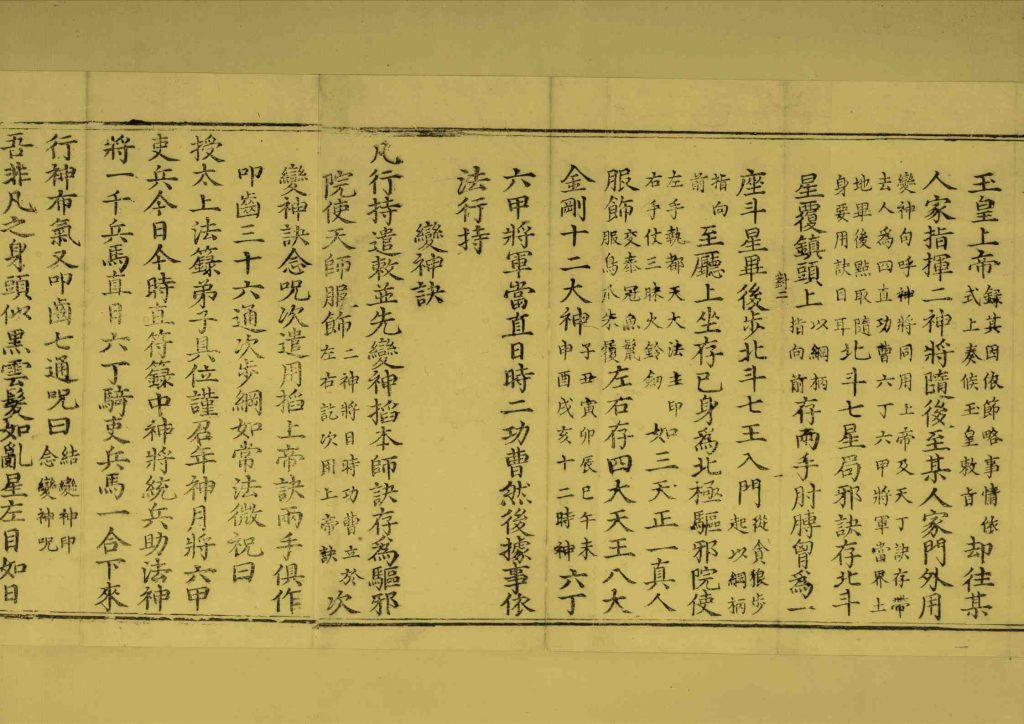 玉皇上帝錄其因依節略事情依式上奏候玉皇敕旨却往某
人家指揮二神將隨後至某人家門外用
變神句呼神將同用上帝及天丁訣存帶
去人為四直功曹六丁六甲將軍當界土
地畢後點取隨身要用訣目耳北斗七星局邪訣存北斗
對二
星覆鎮頭上以綱柄指向前存兩手肘膊曾為一
座斗星畢後步北斗七王入門從貪狼步起以綱柄
指向前至廳上坐存己身為北極驅邪院使
左手執都天大法主印右手仗三昧火鈴劍如三天正一真人
服飾交泰冠魚鬣服鳥爪朱履左右存四大天王八大
金剛十二大神子丑寅卯辰巳午未申酉戌亥十二時神六丁
六甲將軍當直日時二功曹然後據事依
法行持
變神訣
凡行持遣敕並先變神掐本師訣存為驅邪
院使天師服飾二神將日時功曹立於左右訖次用上帝訣次
變神訣念呪次遣用掐上帝訣兩手俱作
叩齒三十六通次步綱如常法微祝曰
授太上法籙弟子具位謹召年神月將六甲
吏兵今日今時直符籙中神將統兵助法神
將一千兵馬直日六丁騎吏兵馬一合下來
行神布氣又叩齒七通呪曰結變神印念變神呪
吾非凡之身頭似黑雲髮如亂星左目如日